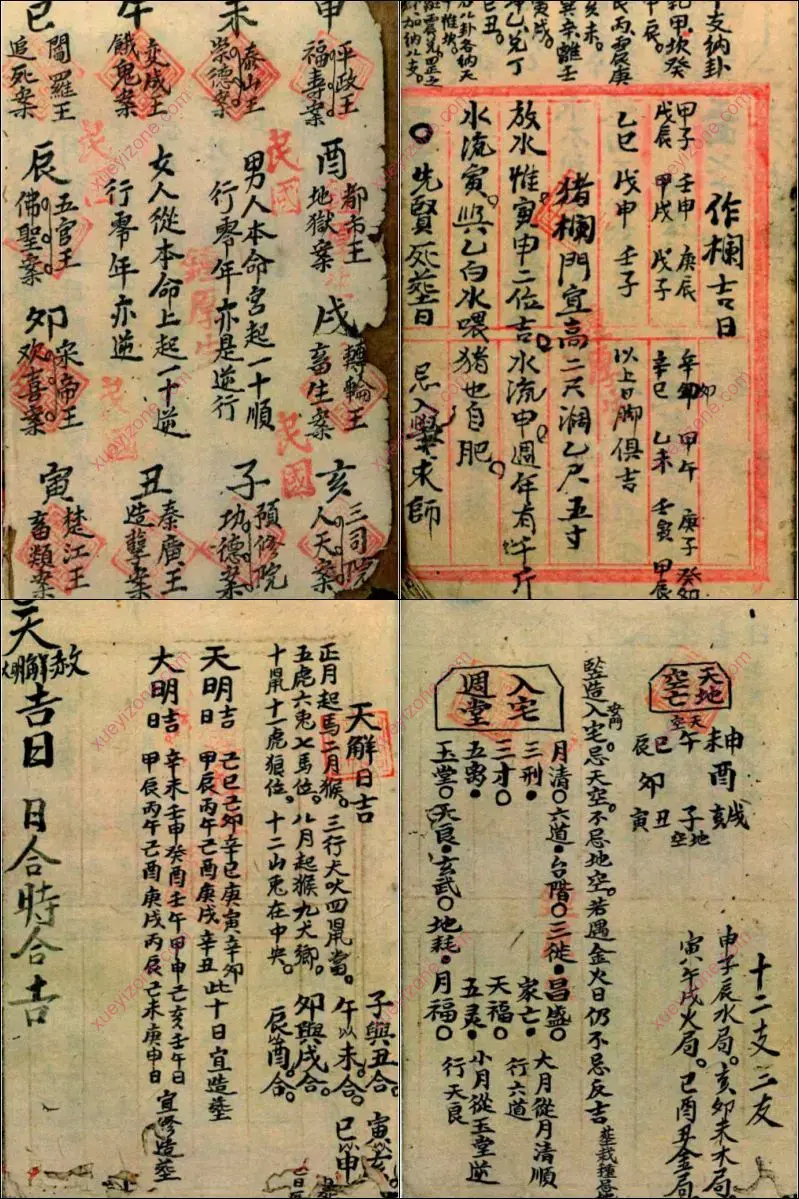 申
平政王
福壽案
未
泰山王
崇德案
午
变成王
餓鬼案
巳
閻羅王
追死案
酉
都市王
地獄案
戌
轉輪王
畜生案
男人本命宮起一十順
行零年亦是逆行
女人從本命上起一十逆
行零年亦逆
辰
五官王
佛聖案
卯
宋帝王
欢喜案
亥
三司院
人天案
子
預修院
功德案
丑
秦廣王
造孽案
寅
楚江王
畜類案
民國
民國
干支納卦
作欄吉日
甲子 壬申 庚辰 辛卯 甲午 庚子 癸卯
戊辰 甲戌 戊子 辛巳 乙未 壬寅 甲辰
乙巳 戊申 壬子 以上日脚俱吉
猪欄門宜高二尺濶乙尺五寸
放水惟寅申二位吉。水流申。週年有千斤
水流寅。與乙白水喂猪也自肥。
先賢死塟日 忌入學求師
天解日吉
正月起馬二月猴。三行犬吠四鼠當。
五虎六兎七馬位。八月起猴九犬鄉。
十鼠十一虎狼位。十二山兎在中央。
子與丑合。寅以亥。
午以未合。巳以申
卯與戌合。
辰以酉合。
天明吉日
己巳己卯辛巳庚寅辛卯
甲辰丙午己酉庚戌辛丑此十日宜造塟
大明吉日
辛未壬申癸酉壬午甲申己亥壬午日
甲辰丙午己酉庚戌丙辰己未庚申日宜修造塟
吉日 日合時合吉
天地空亡
天空
午
未
申
酉
戌
亥
地空
子
丑
寅
卯
辰
巳
十二支三友
申子辰水局。亥卯未木局
寅午戌火局。巳酉丑金局
竪造入宅。忌天空。不忌地空。若遇金火日仍不忌反吉
入宅週堂
月清 六道 台階 三徙 昌盛
三刑 家亡
三才 天福
五鬼 五灵
玉堂 天良 玄武 地耗 月福
大月從月清順
行六道
小月從玉堂逆
行天良
xueyizone.com